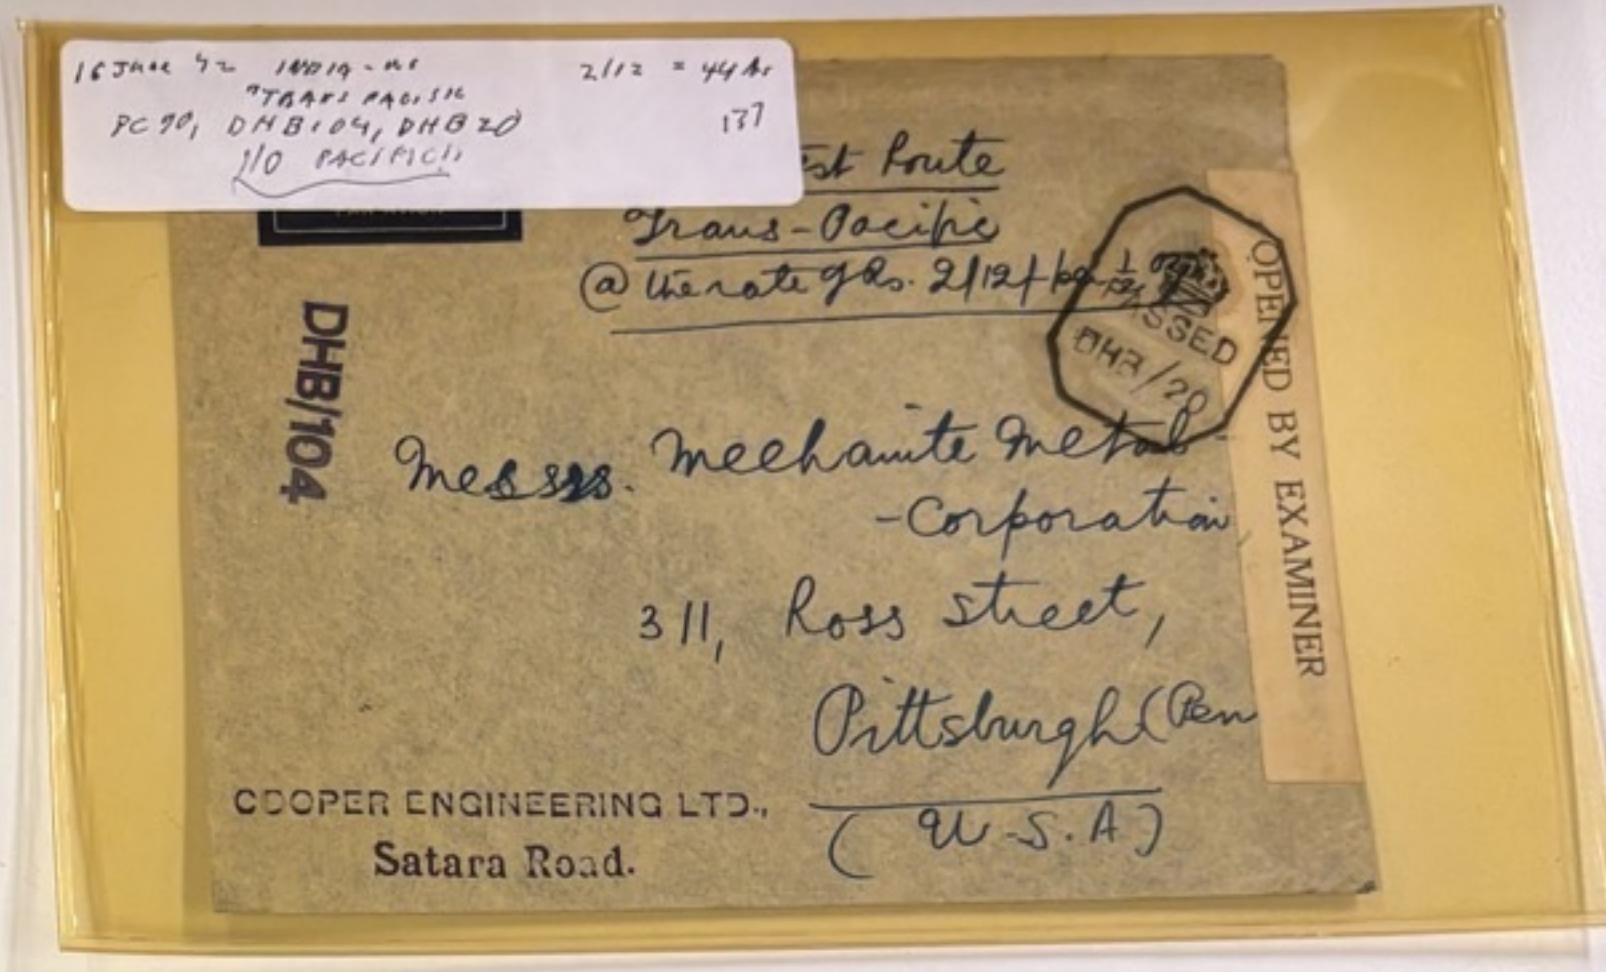 16 June 42 INDIA - US 2/12 = 44 As
"TRANS PACIFIC
PC 90, DHB104, DHB 20 137
I/O PACIFIC"
est Route
Trans-Pacific
@ the rate of Rs. 2/12/- per ½ oz.
DHB/104
PASSED
DHB/20
OPENED BY EXAMINER
Messrs. Meehanite Metal-
-Corporation
311, Ross Street,
Pittsburgh (Pen
(U.S.A)
COOPER ENGINEERING LTD.,
Satara Road.